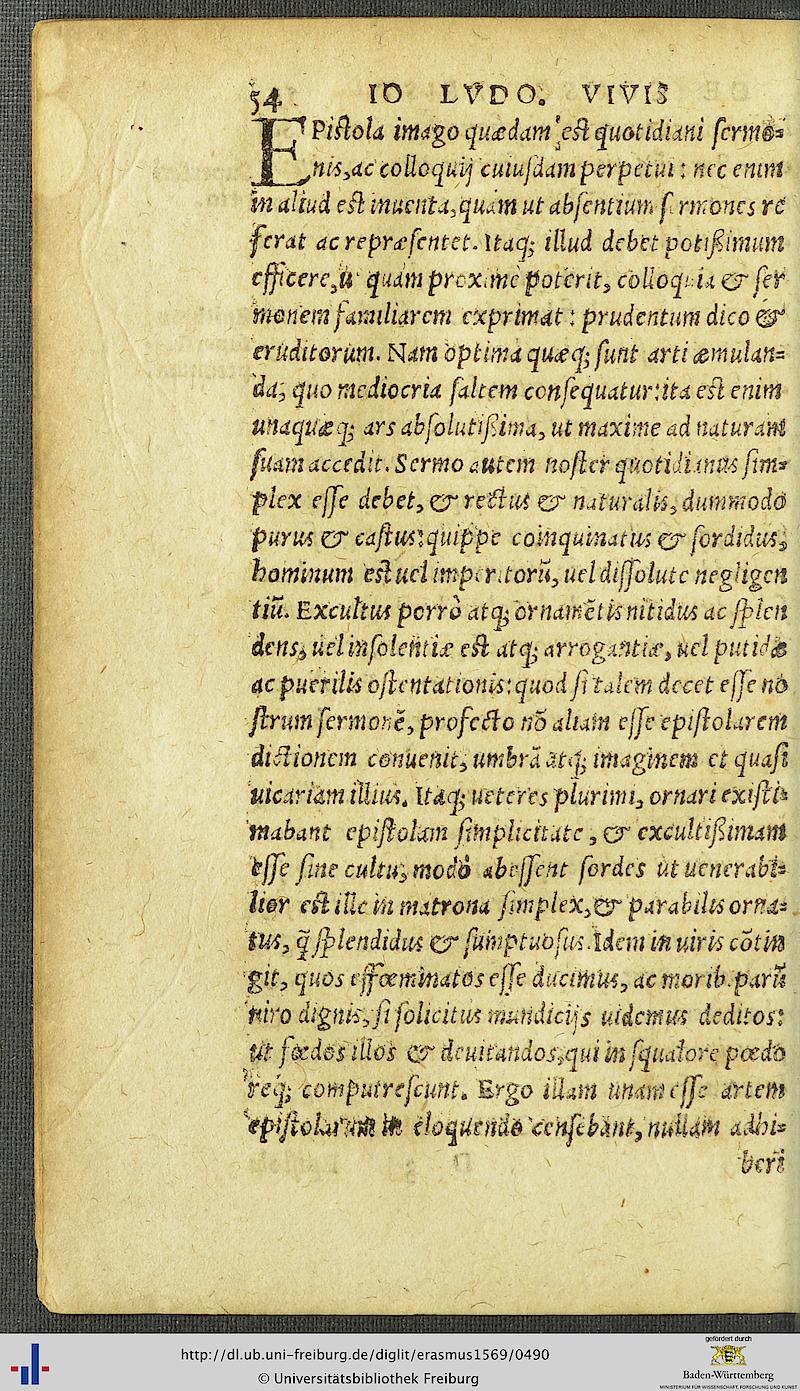 54 IO LVDO. VIVIS
EPistola imago quædam est quotidiani sermo-
nis, ac colloquij cuiusdam perpetui: nec enim
in aliud est inuenta, quàm ut absentium sermones re
ferat ac repræsentet. Itaq; illud debet potißimum
efficere, ut quàm proximè poterit, colloquia & ser
monem familiarem exprimat: prudentum dico &
eruditorum. Nam optima quæq; sunt arti æmulan-
da, quo mediocria saltem consequatur: ita est enim
unaquæq; ars absolutißima, ut maxime ad naturam
suam accedit. Sermo autem noster quotidianus sim-
plex esse debet, & rectus & naturalis, dummodo
purus & castus: quippe coinquinatus & sordidus,
hominum est uel imperitorũ, uel dissolute negligen
tiũ. Excultus porrò atq; ornamẽtis nitidus ac splen
dens, uel insolentiæ est atq; arrogantiæ, uel putidæ
ac puerilis ostentationis: quod si talem decet esse no
strum sermonẽ, profecto nõ aliam esse epistolarem
dictionem conuenit, umbrã atq; imaginem et quasi
uicariam illius. Itaq; ueteres plurimi, ornari existi-
mabant epistolam simplicitate, & excultißimam
esse sine cultu, modò abessent sordes ut uenerabi-
lior est ille in matrona simplex, & parabilis orna-
tus, q̃ splendidus & sumptuosus. Idem in uiris cõtin
git, quos effœminatos esse ducimus, ac morib. parũ
uiro dignis, si solicitus mundicijs uidemus deditos:
ut fœdos illos & deuitandos, qui in squalore pœdo
req; computrescunt. Ergo illam unam esse artem
epistolarum in eloquendo censebant, nullam adhi-
beri
http://dl.ub.uni-freiburg.de/diglit/erasmus1569/0490
© Universitätsbibliothek Freiburg
gefördert durch
Baden-Württemberg
MINISTERIUM FÜR WISSENSCHAFT, FORSCHUNG UND KUNST